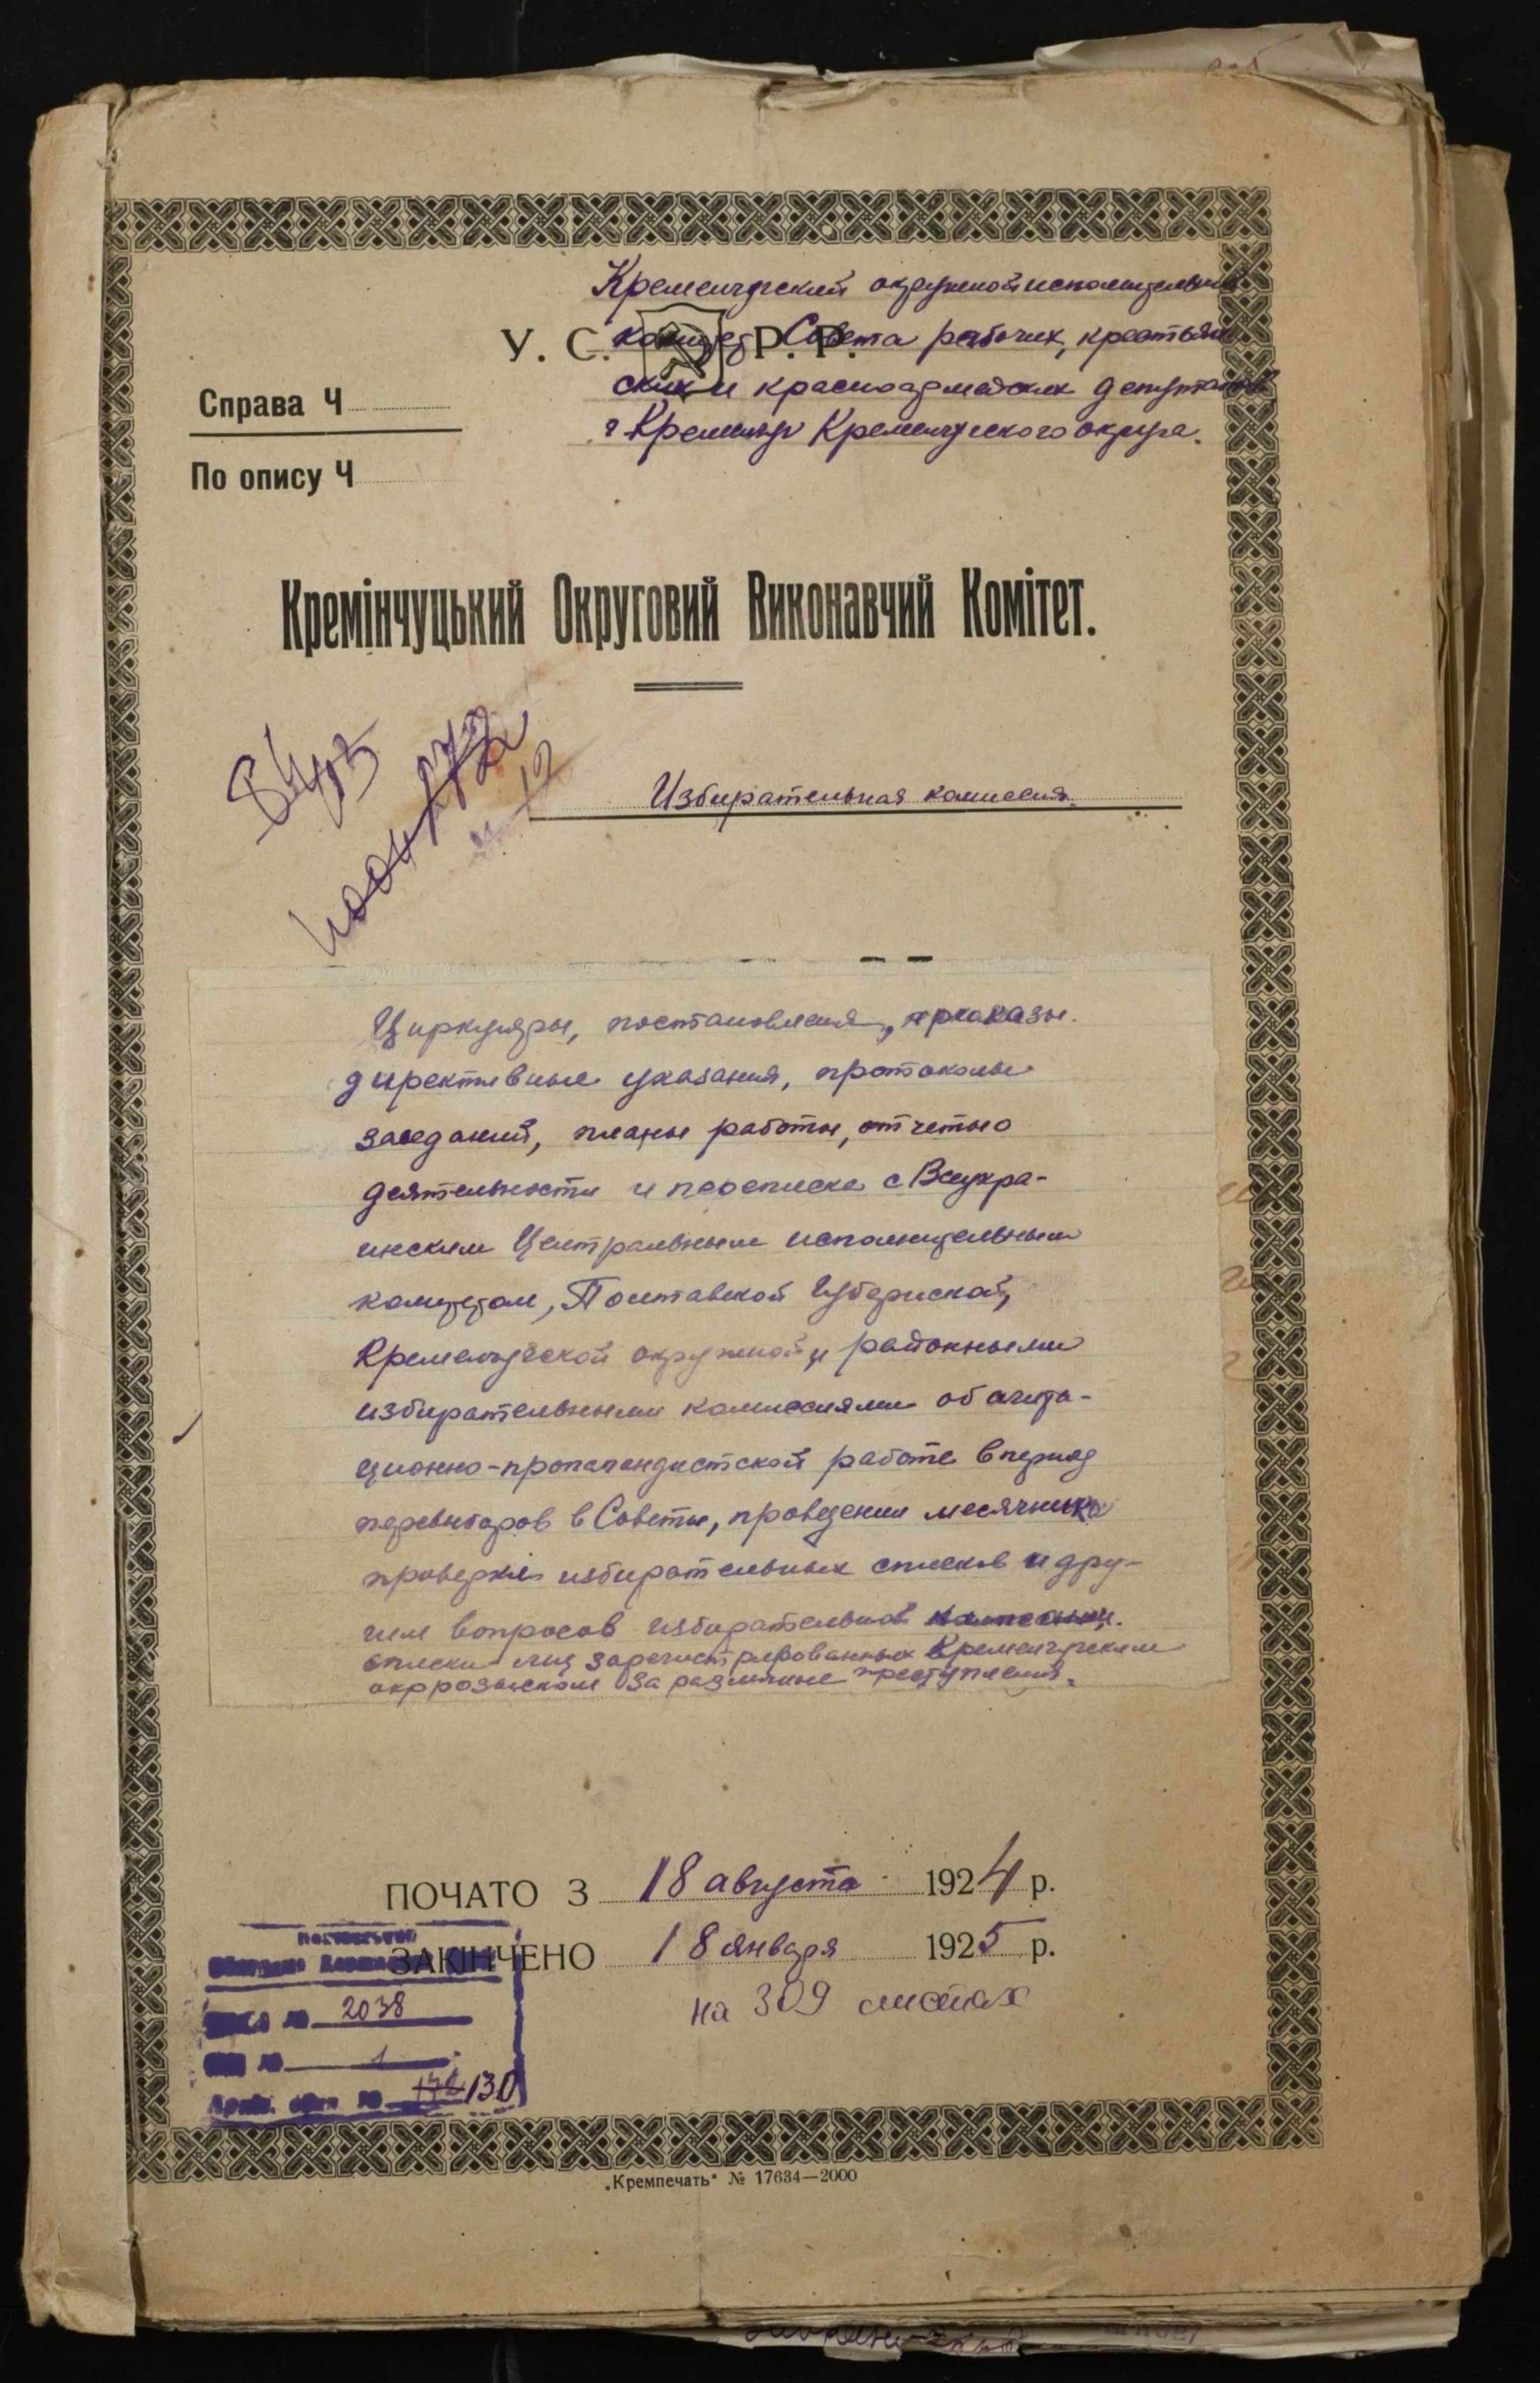 Кременчугский окружной исполнительный
комитет Совета рабочих, крестьян-
ских и красноармейских депутатов
г Кременчуг Кременчугского округа.
У. С. Р. Р.
Справа Ч
По опису Ч
Кремінчуцький Округовий Виконавчий Комітет.
Избирательная комиссия.
Циркуляры, постановления, приказы.
директивные указания, протоколы
заседаний, планы работы, отчеты о
деятельности и переписка с Всеукра-
инским Центральным исполнительным
комитетом, Полтавской Губернской,
Кременчугской окружной и районными
избирательными комиссиями об агита-
ционно-пропагандистской работе в период
перевыборов в Советы, проведении месячника
проверки избирательных списков и дру-
гим вопросов избирательной кампании.
списки лиц зарегистрированных Кременчугским
окррозыском за различные преступления.
ПОЧАТО З 18 августа 1924 р.
ЗАКІНЧЕНО 18 января 1925 р.
на 309 листах
2038
1
130
„Кремпечать" № 17634—2000